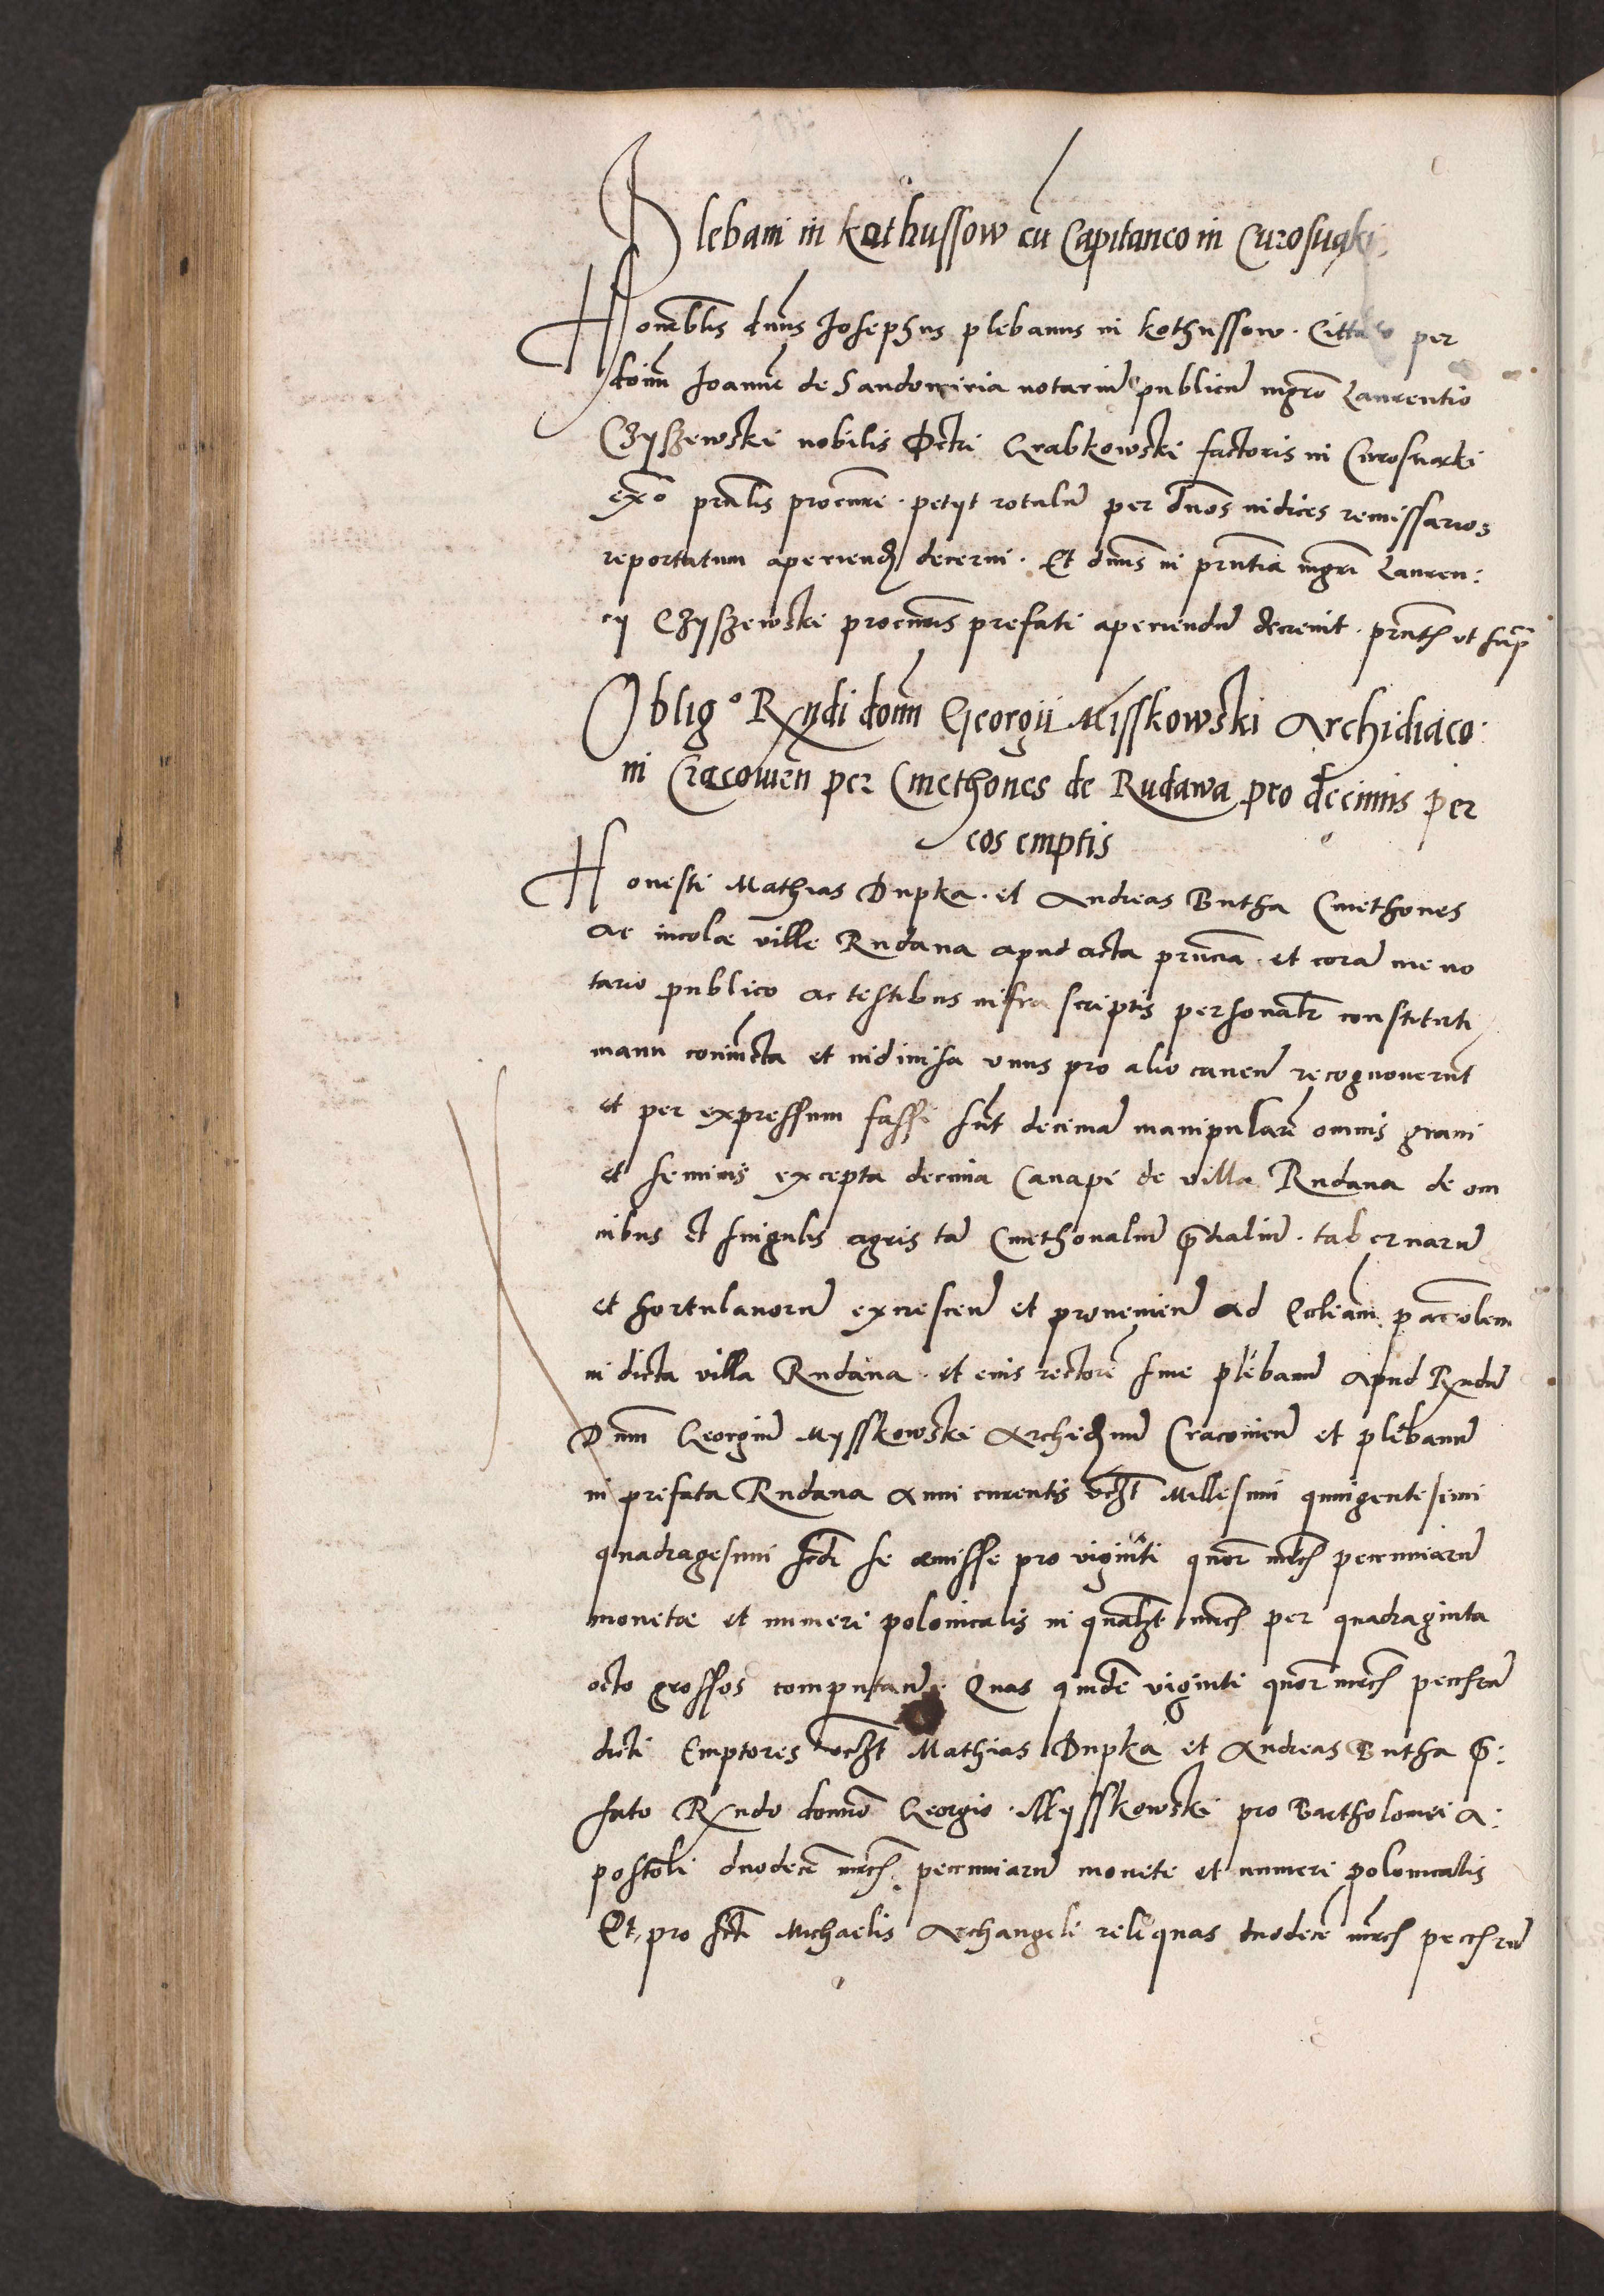 Plebani in Kothussow cũ Capitaneo in Curosuąki
Honorablis dnũs Josephus plebanus in Kothussow. Cittato per
doim̃ Joannẽ de Sandomiria notariũ publicũ mgrõ Laurentio
Czyszewski nobilis Petri Grabkowski factoris in Curosuącki
exõ prñlis procurẽ. petyt rotulũ per dños iudices remissarios
reportatum aperiend decerni. Et dnũs in prñtia mgrĩ Lauren:
cy Czyszewski procurĩs prefati apperiendũ decreuit. prñtꝭ ut supꝛ
Oblig° Rṽndi dom̃ Georgii Misskowski Archidiaco:
ni Cracowieñ per Cmethones de Rudawa pro decimis per
eos emptis
Honesti Mathias Dupka. et Andreas Butha Cmethones
ac incolæ ville Rudaua apud acta prñcia. et corã me no
tario publico ac testibus infra scriptis personalr̃ constituti
manu coniũcta et indiuisa vnus pro alio cauenẽ recognouerũt
et per expressum fassi sũt decimã manipularẽ omnis grani
et seminis excepta decima Canapi de villa Rudaua de om
nibus et singulis agris tã Cmethonaliũ p̃dialiũ. tabernarũ
et hortulanorũ excrescẽn et proueniẽn ad Ecĉliam parrolem
in dicta villa Rudaua. et eius rectorẽ siue plebanũ apud Rṽndũ
Dnũm Georgiũ Mysskowski Archidnũ Cracouieñ et plebanũ
in prefata Rudaua Anni currentis vczt Millesimi quingentesimi
quadragesimi scdĩ se emisse pro viginti quor mrcꝭ pecuniarũ
monetæ et numeri polonicalis in qualzt mrcꝭ per quadraginta
octo grossos computanẽ. Quas quidẽ viginti quor mrcꝭ peccꝭrũ
dicti Emptores vczt Mathias Dupka et Andreas Butha p̃:
fato Rṽndo domĩno Georgio Mysskowski pro Bartholomei A:
postoli duodecĩ mrcꝭ pecuniarũ monete et numeri polonicalis
Et pro sctĩ Michaelis Archangeli reliquas duodecĩ mrcꝭ peccꝭrũ